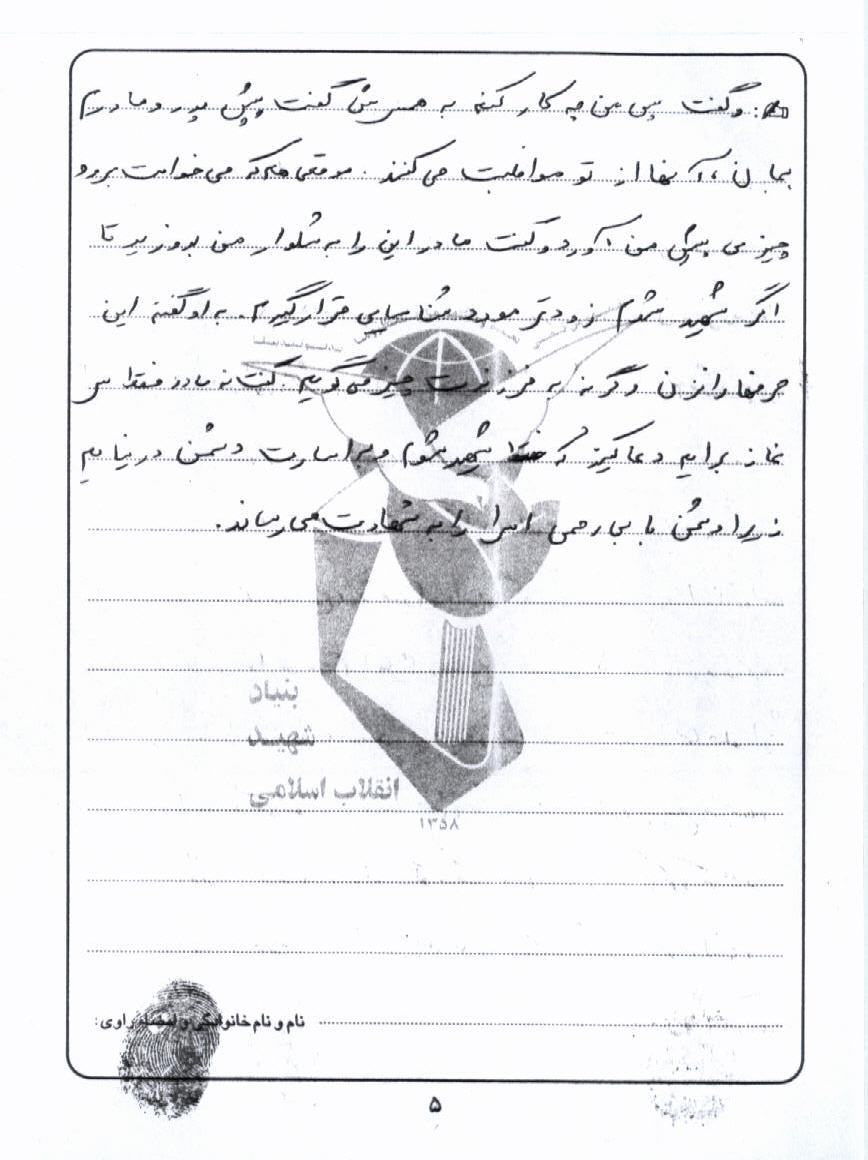 ج: وگفت پس من چه کار کنم به همسرش گفت پیش پدر و مادرم
بمان، آنها از تو مواظبت می‌کنند. موقعی که می‌خواست برود
چیزی پیش من آورد و گفت مادر این را به شلوار من بدوزید تا
اگر شهید شدم زودتر مورد شناسایی قرار گیرم. به او گفتم این
حرفها را نزن وگرنه به فرزندت چیز می‌گویم. گفت نه مادر فقط سر
نماز برایم دعا کنید که شهید شوم و به اسارت دشمن در نیایم
زیرا دشمن با بی‌رحمی اسرا را به شهادت می‌رساند.
بنیاد
شهید
انقلاب اسلامی
۱۳۵۸
نام و نام خانوادگی و امضاء راوی:
۵